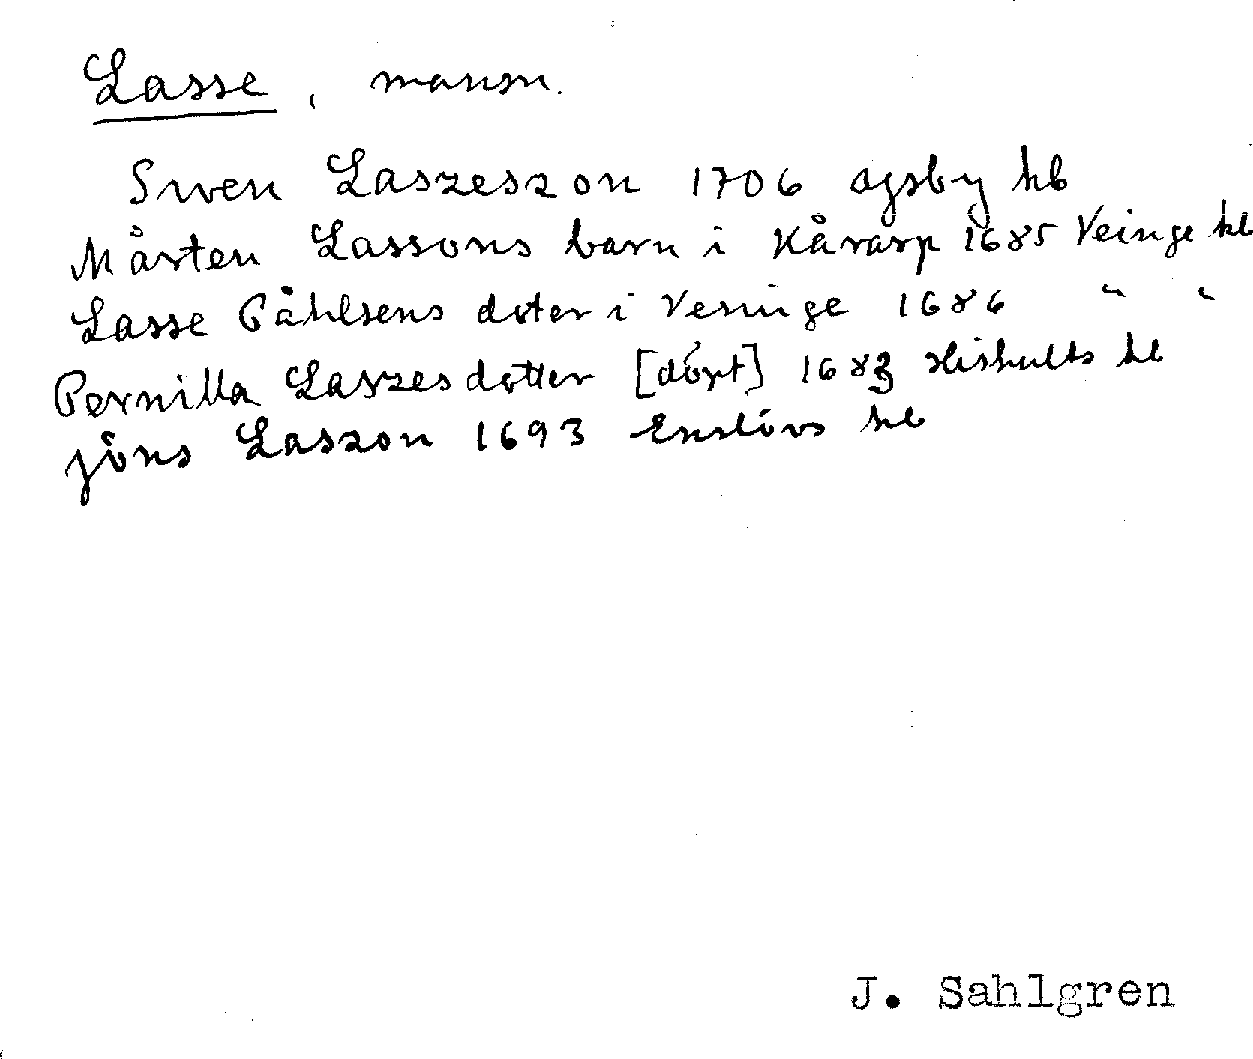 Lasse, mansn.
Swen Laszeszon 1706 Ogsby kb
Mårten Lassons barn i Kårarp 1685 Veinge kb
Lasse Påhlsens doter i Veninge 1686 " "
Pernilla Laszesdotter [döpt] 1683 Hishults kb
Jöns Laszon 1693 Enslövs kb
J. Sahlgren